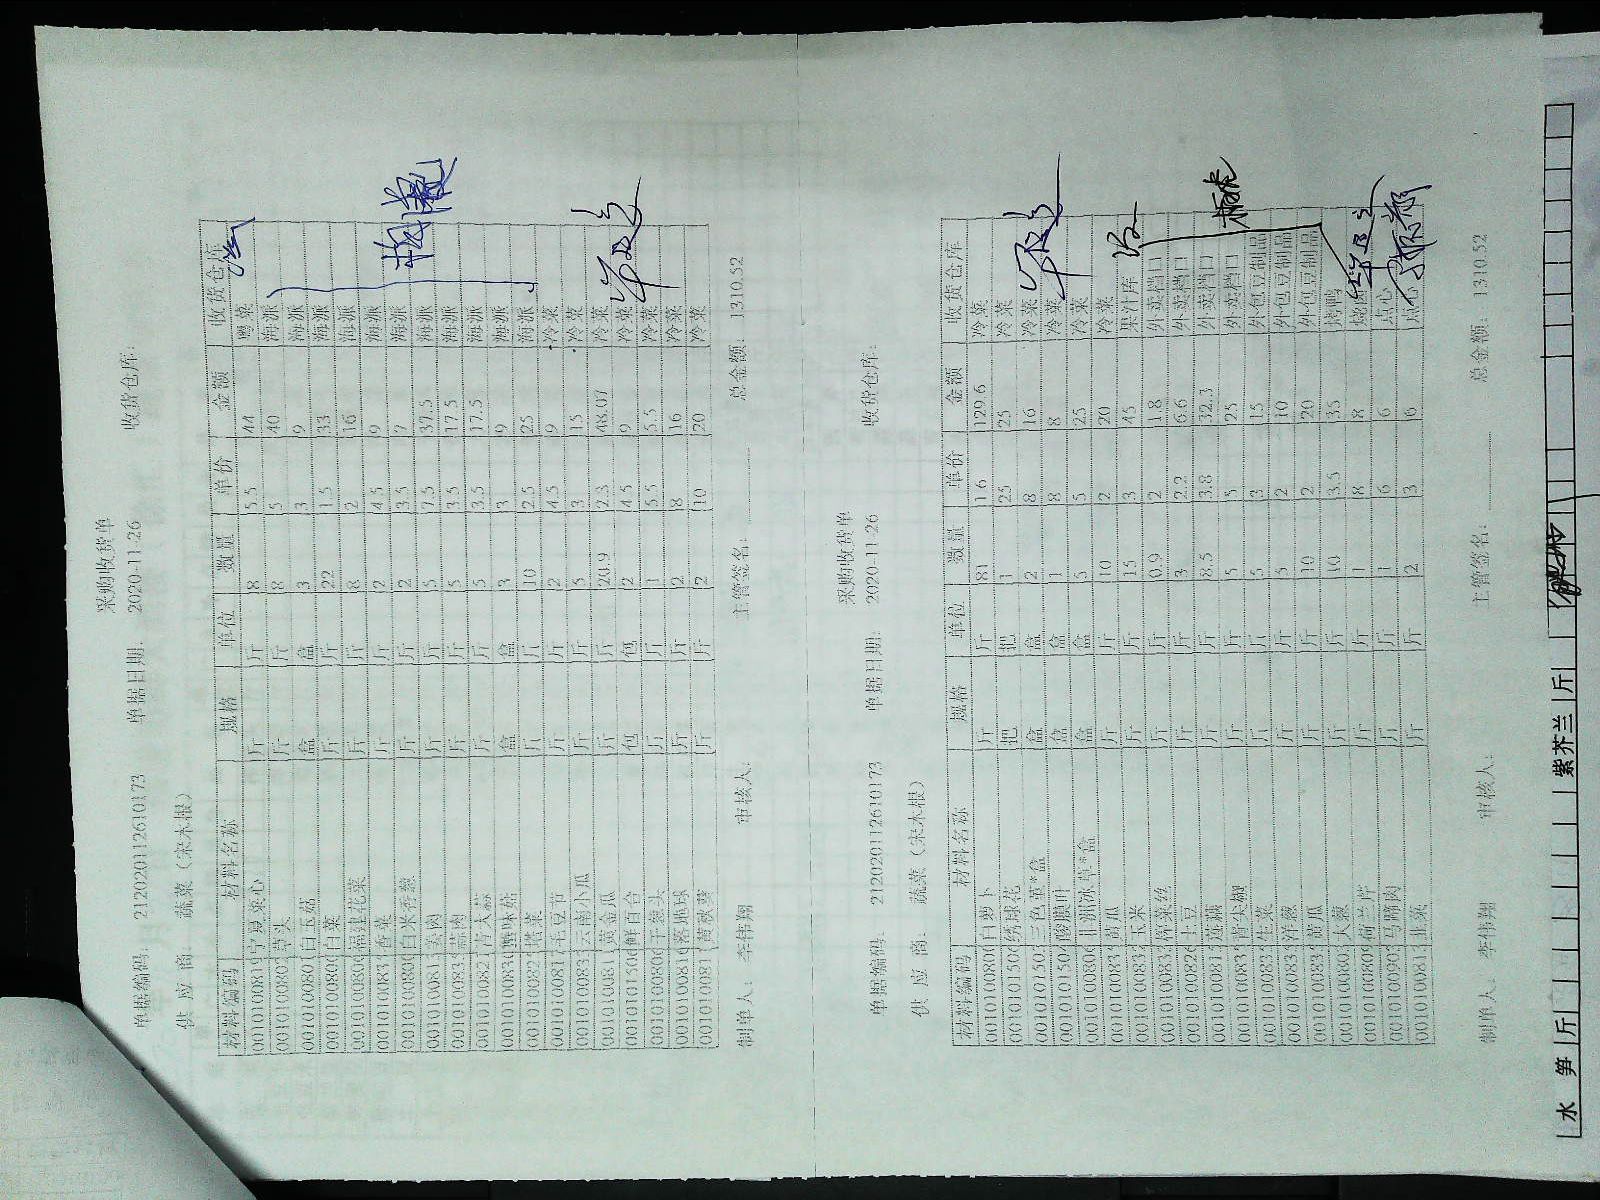 采购收货单
单据编码: 212020112610173 单据日期: 2020-11-26 收货仓库:
供 应 商: 蔬菜（宋木根）
材料编码 材料名称 规格 单位 数量 单价 金额 收货仓库
0010100819 宁夏菜心 斤 斤 8 5.5 44 粤菜
0010100802 草头 斤 斤 8 5 40 海派
0010100801 白玉菇 盒 盒 3 3 9 海派
0010100800 白菜 斤 斤 22 1.5 33 海派
0010100800 福建花菜 斤 斤 8 2 16 海派
001010083 香菜 斤 斤 2 4.5 9 海派
0010100800 白米香葱 斤 斤 2 3.5 7 海派
001010081 姜肉 斤 斤 5 7.5 37.5 海派
001010083 蒜肉 斤 斤 5 3.5 17.5 海派
001010082 青大蒜 斤 斤 5 3.5 17.5 海派
0010100830 蟹味菇 盒 盒 3 3 9 海派
001010082 塔菜 斤 斤 10 2.5 25 海派
001010081 毛豆节 斤 斤 2 4.5 9 冷菜
001010083 云南小瓜 斤 斤 5 3 15 冷菜
001010081 黄金瓜 斤 斤 20.9 2.3 48.07 冷菜
0010101506 鲜百合 包 包 2 4.5 9 冷菜
0010100806 干葱头 斤 斤 1 5.5 5.5 冷菜
0010100816 斤 斤 2 8 16 冷菜
001010081 黄秋葵 斤 斤 2 10 20 冷菜
制单人: 李伟翔 审核人: 主管签名: 总金额: 1310.52
采购收货单
单据编码: 212020112610173 单据日期: 2020-11-26 收货仓库:
供 应 商: 蔬菜（宋木根）
材料编码 材料名称 规格 单位 数量 单价 金额 收货仓库
0010100801 白萝卜 斤 斤 81 1.6 129.6 冷菜
0010101501 绣球花 把 把 1 25 25 冷菜
001010150 三色堇*盒 盒 盒 2 8 16 冷菜
0010101501 酸膜叶 盒 盒 1 8 8 冷菜
0010100806 盒 盒 5 5 25 冷菜
001010083 黄瓜 斤 斤 10 2 20 冷菜
001010083 玉米 斤 斤 15 3 45 果汁库
001010083 榨菜丝 斤 斤 0.9 2 1.8 外卖档口
0010100826 土豆 斤 斤 3 2.2 6.6 外卖档口
001010081 莲藕 斤 斤 8.5 3.8 32.3 外卖档口
001010083 青尖椒 斤 斤 5 5 25 外卖档口
001010082 生菜 斤 斤 5 3 15 外包豆制品
001010083 洋葱 斤 斤 5 2 10 外包豆制品
001010083 黄瓜 斤 斤 10 2 20 外包豆制品
0010100803 大葱 斤 斤 10 3.5 35 烤鸭
0010100807 荷兰芹 斤 斤 1 8 8 烧卤
001010090 马蹄肉 斤 斤 1 6 6 点心
001010081 韭菜 斤 斤 2 3 6 点心
制单人: 李伟翔 审核人: 主管签名: 总金额: 1310.52
水 笋 斤 紫芥兰 斤